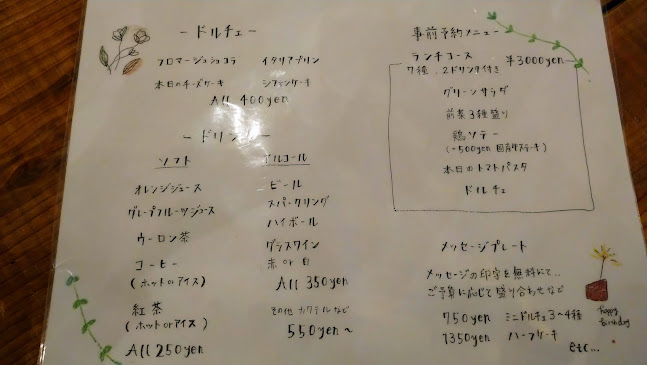 ードルチェー
フロマージュショコラ イタリアプリン
本日のチーズケーキ シフォンケーキ
All 400yen
ードリンクー
ソフト
オレンジジュース
グレープフルーツジュース
ウーロン茶
コーヒー
(ホットorアイス)
紅茶
(ホットorアイス)
All 250yen
アルコール
ビール
スパークリング
ハイボール
グラスワイン
赤or白
All 350yen
その他 カクテルなど
550yen~
事前予約メニュー
ランチコース ¥3000yen
7種、2ドリンク付き
グリーンサラダ
前菜3種盛り
鶏ソテー
本日のトマトパスタ
ドルチェ
メッセージプレート
メッセージの印字を無料にて..
ご予算に応じて盛り合わせなど
750yen ミニドルチェ3~4種
1350yen ハーフケーキ
etc...
Happy
Birthday